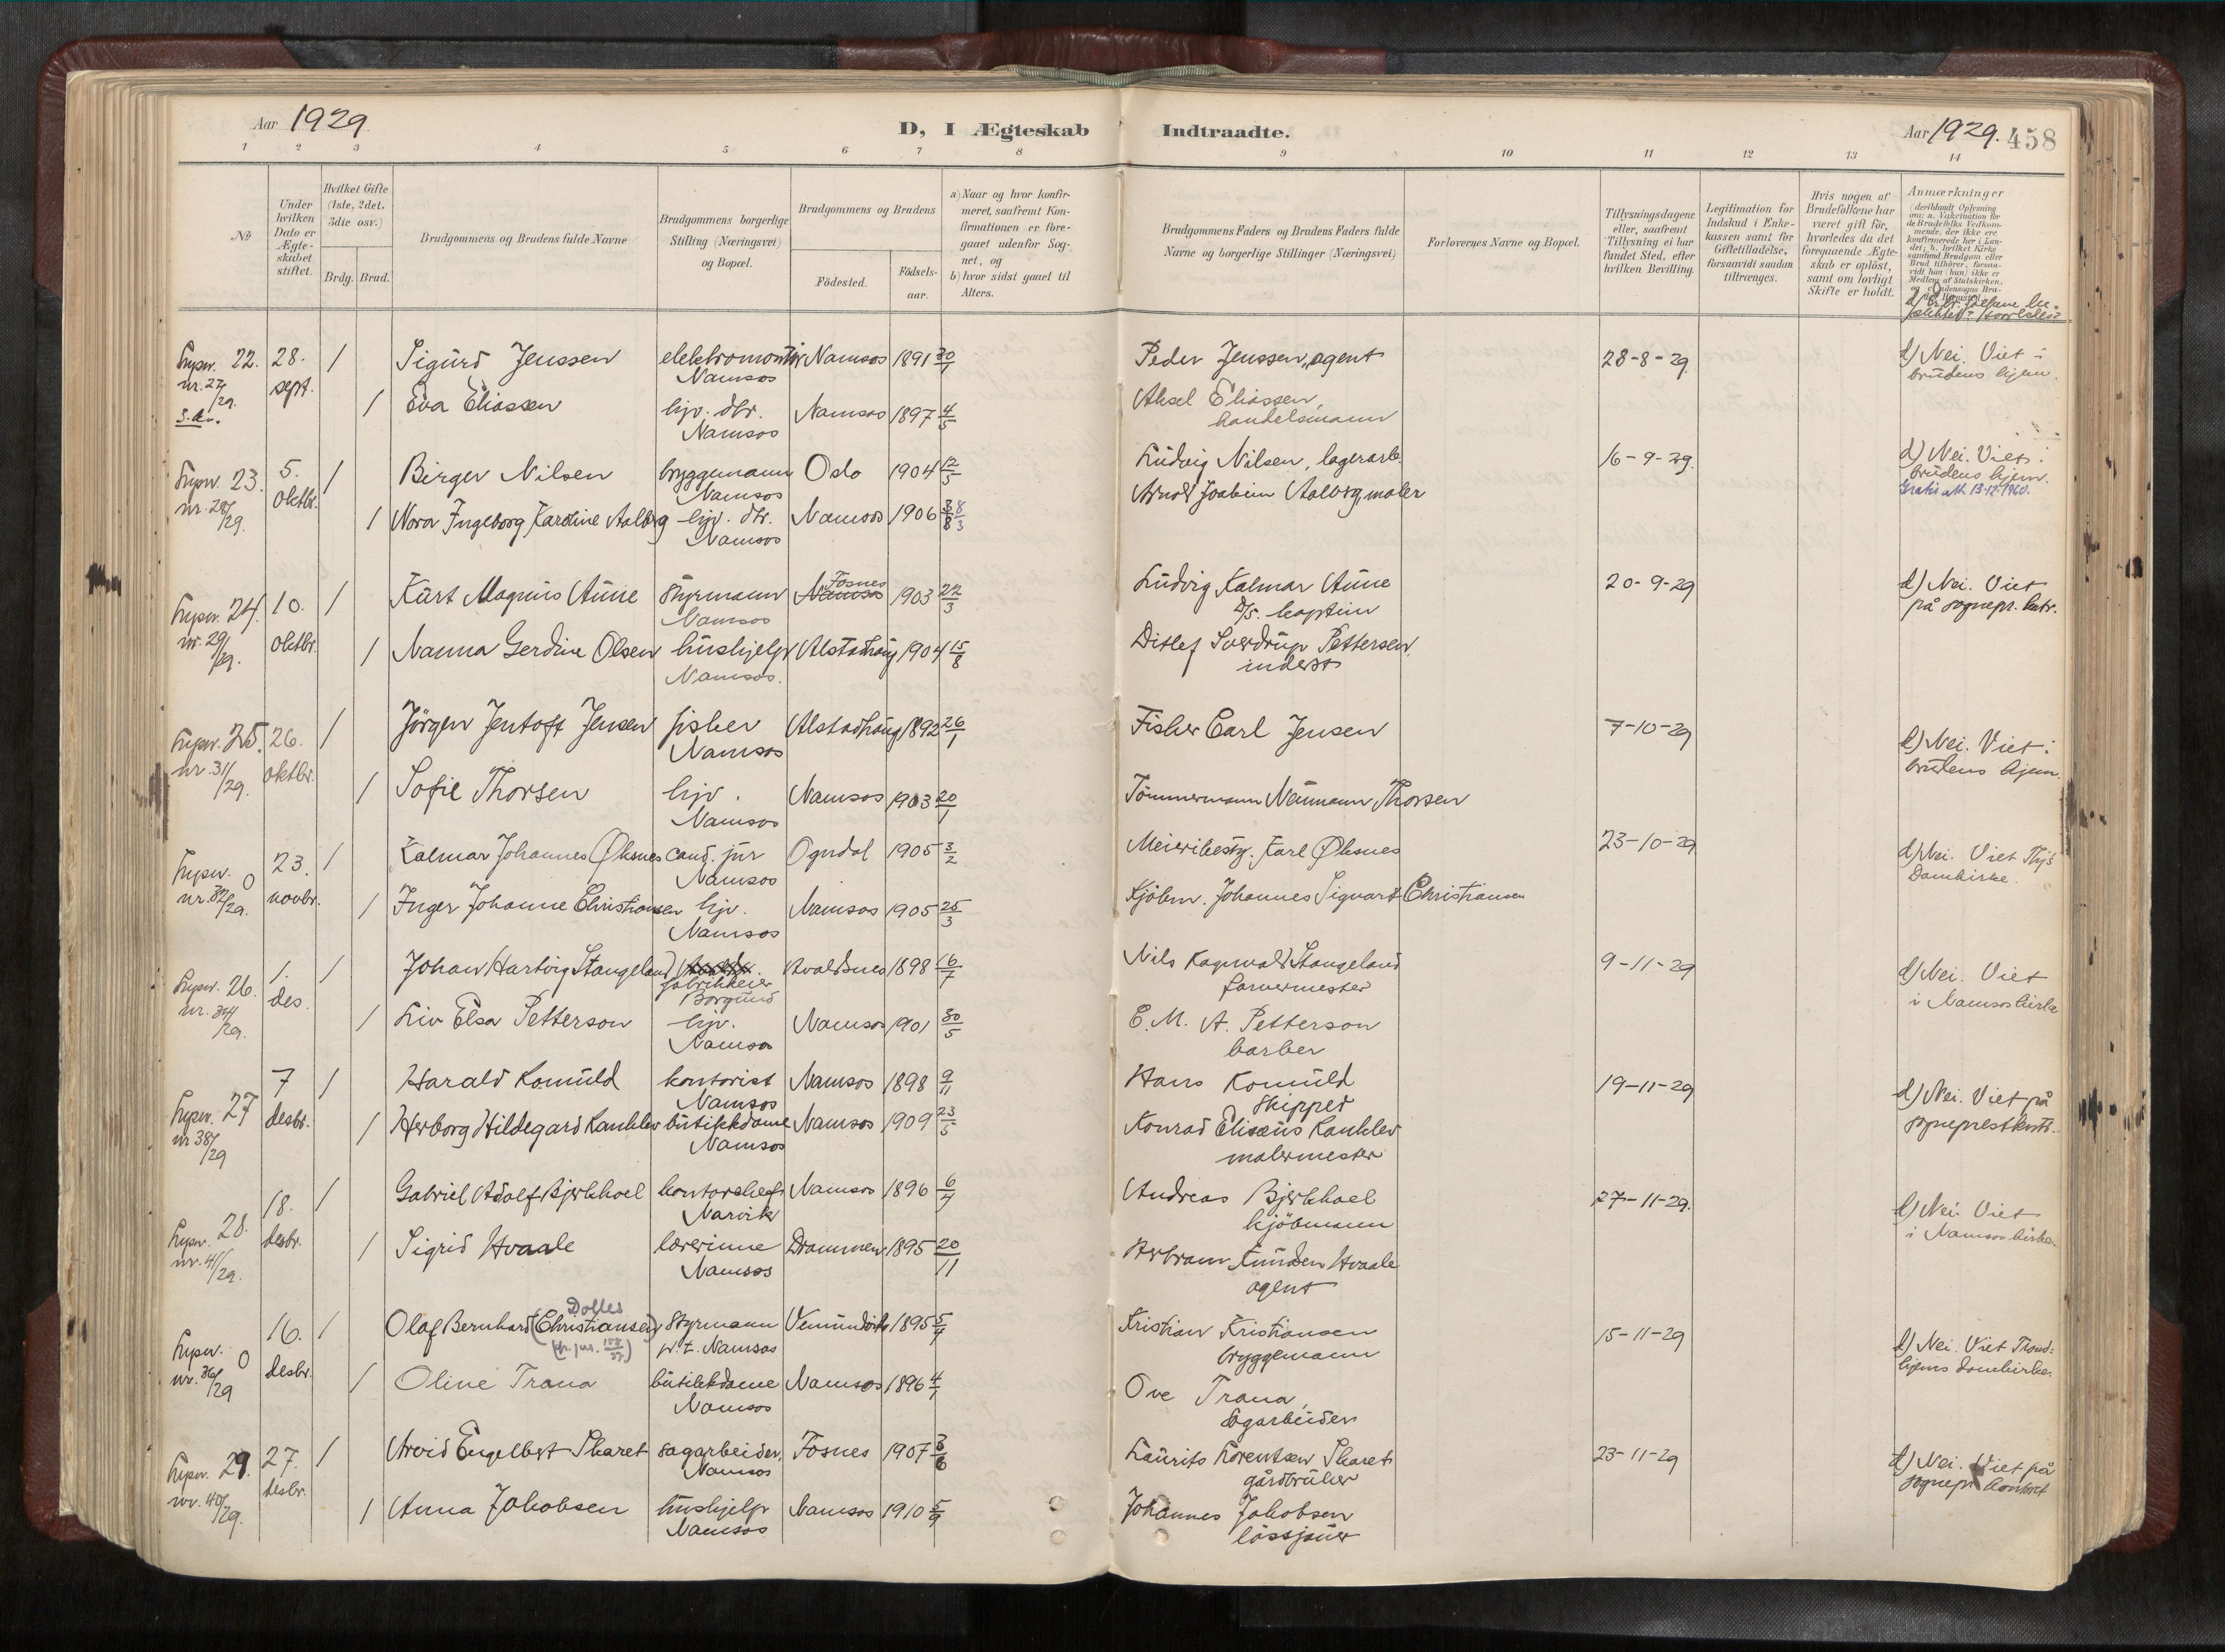 Aar 1929.
D, I Ægteskab Indtraadte.
Aar 1929. 458
1 2 3 4 5 6 7 8 9 10 11 12 13 14
No
Under hvilken Dato er Ægteskabet stiftet.
Hvilket Gifte (1ste, 2det, 3die osv.)
Brdg. Brud.
Brudgommens og Brudens fulde Navne
Brudgommens borgerlige Stilling (Næringsvei) og Bopæl.
Brudgommens og Brudens
Fødested.
Fødselsaar.
a) Naar og hvor konfirmeret, saafremt Konfirmationen er foregaaet udenfor Sognet, og
b) hvor sidst gaaet til Alters.
Brudgommens Faders og Brudens Faders fulde Navne og borgerlige Stillinger (Næringsvei)
Forlovernes Navne og Bopæl.
Tillysningsdagene eller, saafremt Tillysning ei har fundet Sted, efter hvilken Bevilling.
Legitimation for Indskud i Enkekassen samt for Giftetilladelse, forsaavidt saadan tiltrænges.
Hvis nogen af Brudefolkene har været gift før, hvorledes da det foregaaende Ægteskab er opløst, samt om lovligt Skifte er holdt.
Anmærkninger
22. 28. 1 Sigurd Jenssen elektromontør Namsos 1891 30/1 Peder Jenssen, agent 28-8-29 d) Nei. Viet i
nr. 27/29. sept. Namsos brudens hjem.
1 Eva Eliassen hjv. dtr. Namsos 1897 4/5 Aksel Eliassen,
Namsos handelsmann
23. 5. 1 Birger Nilsen bryggemann Oslo 1904 12/5 Ludvig Nilsen, lagerarb. 16-9-29. d) Nei. Viet i
nr. 28/29. oktbr. Namsos brudens hjem.
1 Nora Ingeborg Karoline Aalberg hjv. dtr. Namsos 1906 8/3 Arnold Joakim Aalberg, maler
Namsos
24. 10. 1 Kurt Magnus Aune styrmann Fosnes 1903 22/3 Ludvig Kalmar Aune 20-9-29 d) Nei. Viet
nr. 29/29. oktbr. Namsos D/S. kaptein på sognepr. kntr.
1 Nanna Gerdine Olsen hushjelp Alstadhaug 1904 15/8 Ditlef Sverdrup Pettersen
Namsos. inderst
25. 26. 1 Jörgen Jentoft Jensen fisker Alstadhaug 1892 26/1 Fisker Carl Jensen 7-10-29 d) Nei. Viet i
nr. 31/29. oktbr. Namsos brudens hjem.
1 Sofie Thorsen hjv. Namsos 1903 20/1 Tömmermann Neumann Thorsen
Namsos
0 23. 1 Kalmar Johannes Øksnes cand. jur Ogndal 1905 3/2 Meieribesty. Karl Øksnes 23-10-29 d) Nei. Viet Thjs
nr. 32/29. novbr. Namsos Domkirke.
1 Inger Johanne Christiansen hjv. Namsos 1905 25/3 Kjöbm. Johannes Sigvart Christiansen
Namsos
26. 1. 1 Johan Hartvig Stangeland fabrikkeier Avaldsnes 1898 16/7 Nils Ragnvald Stangeland 9-11-29 d) Nei. Viet
nr. 34/29. des. Borgund farvermester i Namsos kirke
1 Liv Elsa Petterson hjv. Namsos 1901 30/5 E. M. A. Petterson
Namsos barber
27 7 1 Harald Romuld kontorist Namsos 1898 9/11 Hans Romuld 19-11-29 d) Nei. Viet på
nr 38/29 desbr. Namsos Skipper sogneprestkontr.
1 Herborg Hildegard Kankler butikkdame Namsos 1909 23/5 Konrad Elisæus Kankler
Namsos malermester
28. 18. 1 Gabriel Adolf Bjerkhoel kontorchef Namsos 1896 6/4 Andreas Bjerkhoel 27-11-29. d) Nei. Viet
nr. 41/29. desbr. Narvik kjöbmann i Namsos kirke.
1 Sigrid Hvaale lærerinne Drammen 1895 20/11 Knudsen Hvaale
Namsos agent
Dolles
0 16. 1 Olaf Bernhard (Christiansen) Styrmann Vemundvik 1895 5/4 Kristian Kristiansen 15-11-29 d) Nei. Viet Trond-
nr. 36/29 desbr. p.t. Namsos bryggemann hjems domkirke.
1 Oline Trana butikkdame Namsos 1896 4/1 Ove Trana,
Namsos Sagarbeider
29. 27. 1 Arvid Engelbert Skaret sagarbeider, Fosnes 1907 3/6 Laurits Lorentsen Skaret 23-11-29 d) Nei. Viet på
nr. 40/29. desbr. Namsos gårdbruker sognepr. kontoret
1 Anna Jakobsen hushjelp Namsos 1910 5/9 Johannes Jakobsen
Namsos lössjauer